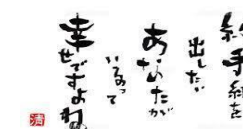 絵手紙を
出したい
あなたが
いるって
幸
せですよね
清